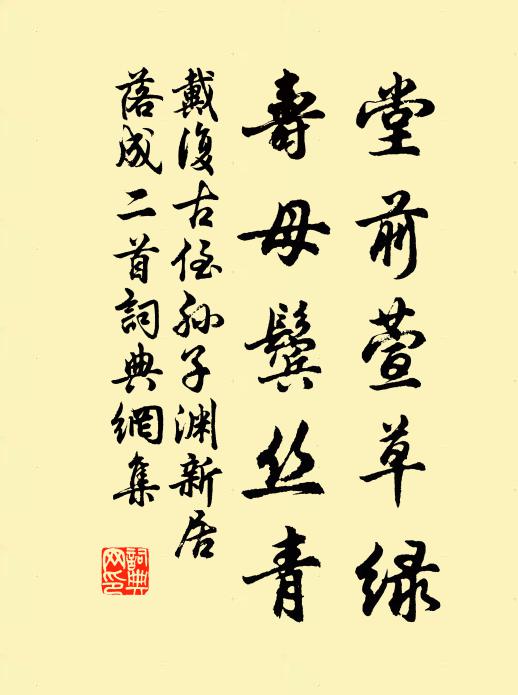 堂前萱草绿
壽母鬢丝青
戴復古侄孙子渊新居
落成二首詞典網集
詞典网印